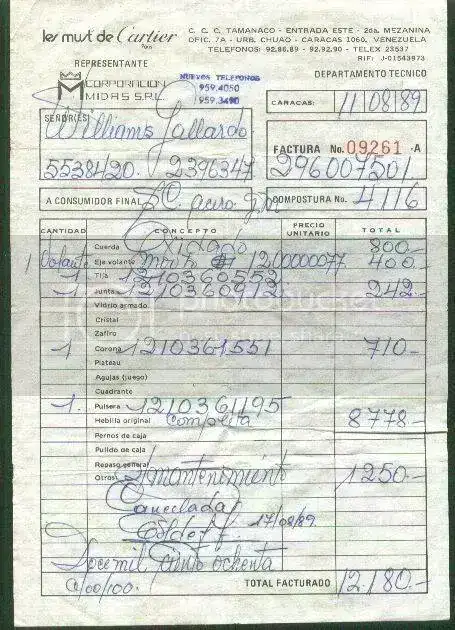 les must de Cartier
Paris
C. C. C. TAMANACO - ENTRADA ESTE - 2da. MEZANINA
OFIC. 7A - URB. CHUAO - CARACAS 1060, VENEZUELA
TELEFONOS: 92.86.89 - 92.92.90 - TELEX 23537
RIF: J-01543973
REPRESENTANTE
CORPORACION
MIDAS S.R.L.
NUEVOS TELEFONOS
959.4050
959.3490
DEPARTAMENTO TECNICO
CARACAS: 11/08/89.
SEÑOR(ES)
Williams Gallardo
5538420. 2396347
FACTURA No. 09261 -A
296007501.
A CONSUMIDOR FINAL
COMPOSTURA No. 4116
CANTIDAD CONCEPTO PRECIO UNITARIO TOTAL
Cuerda 800.-
1 Volante Eje volante 1200000077 400.-
1 Tija 1210360552
1 Junta 242.-
Vidrio armado
Cristal
Zafiro
1 Corona 1210361551 710.-
Plateau
Agujas (juego)
Cuadrante
1. Pulsera 1210361195
Hebilla original Completa 8778.-
Pernos de caja
Pulido de caja
Repaso general
Otros mantenimiento 1250.-
Cancelada
17/08/89.
Doce mil ciento ochenta
c/00/100.
TOTAL FACTURADO 12.180.-